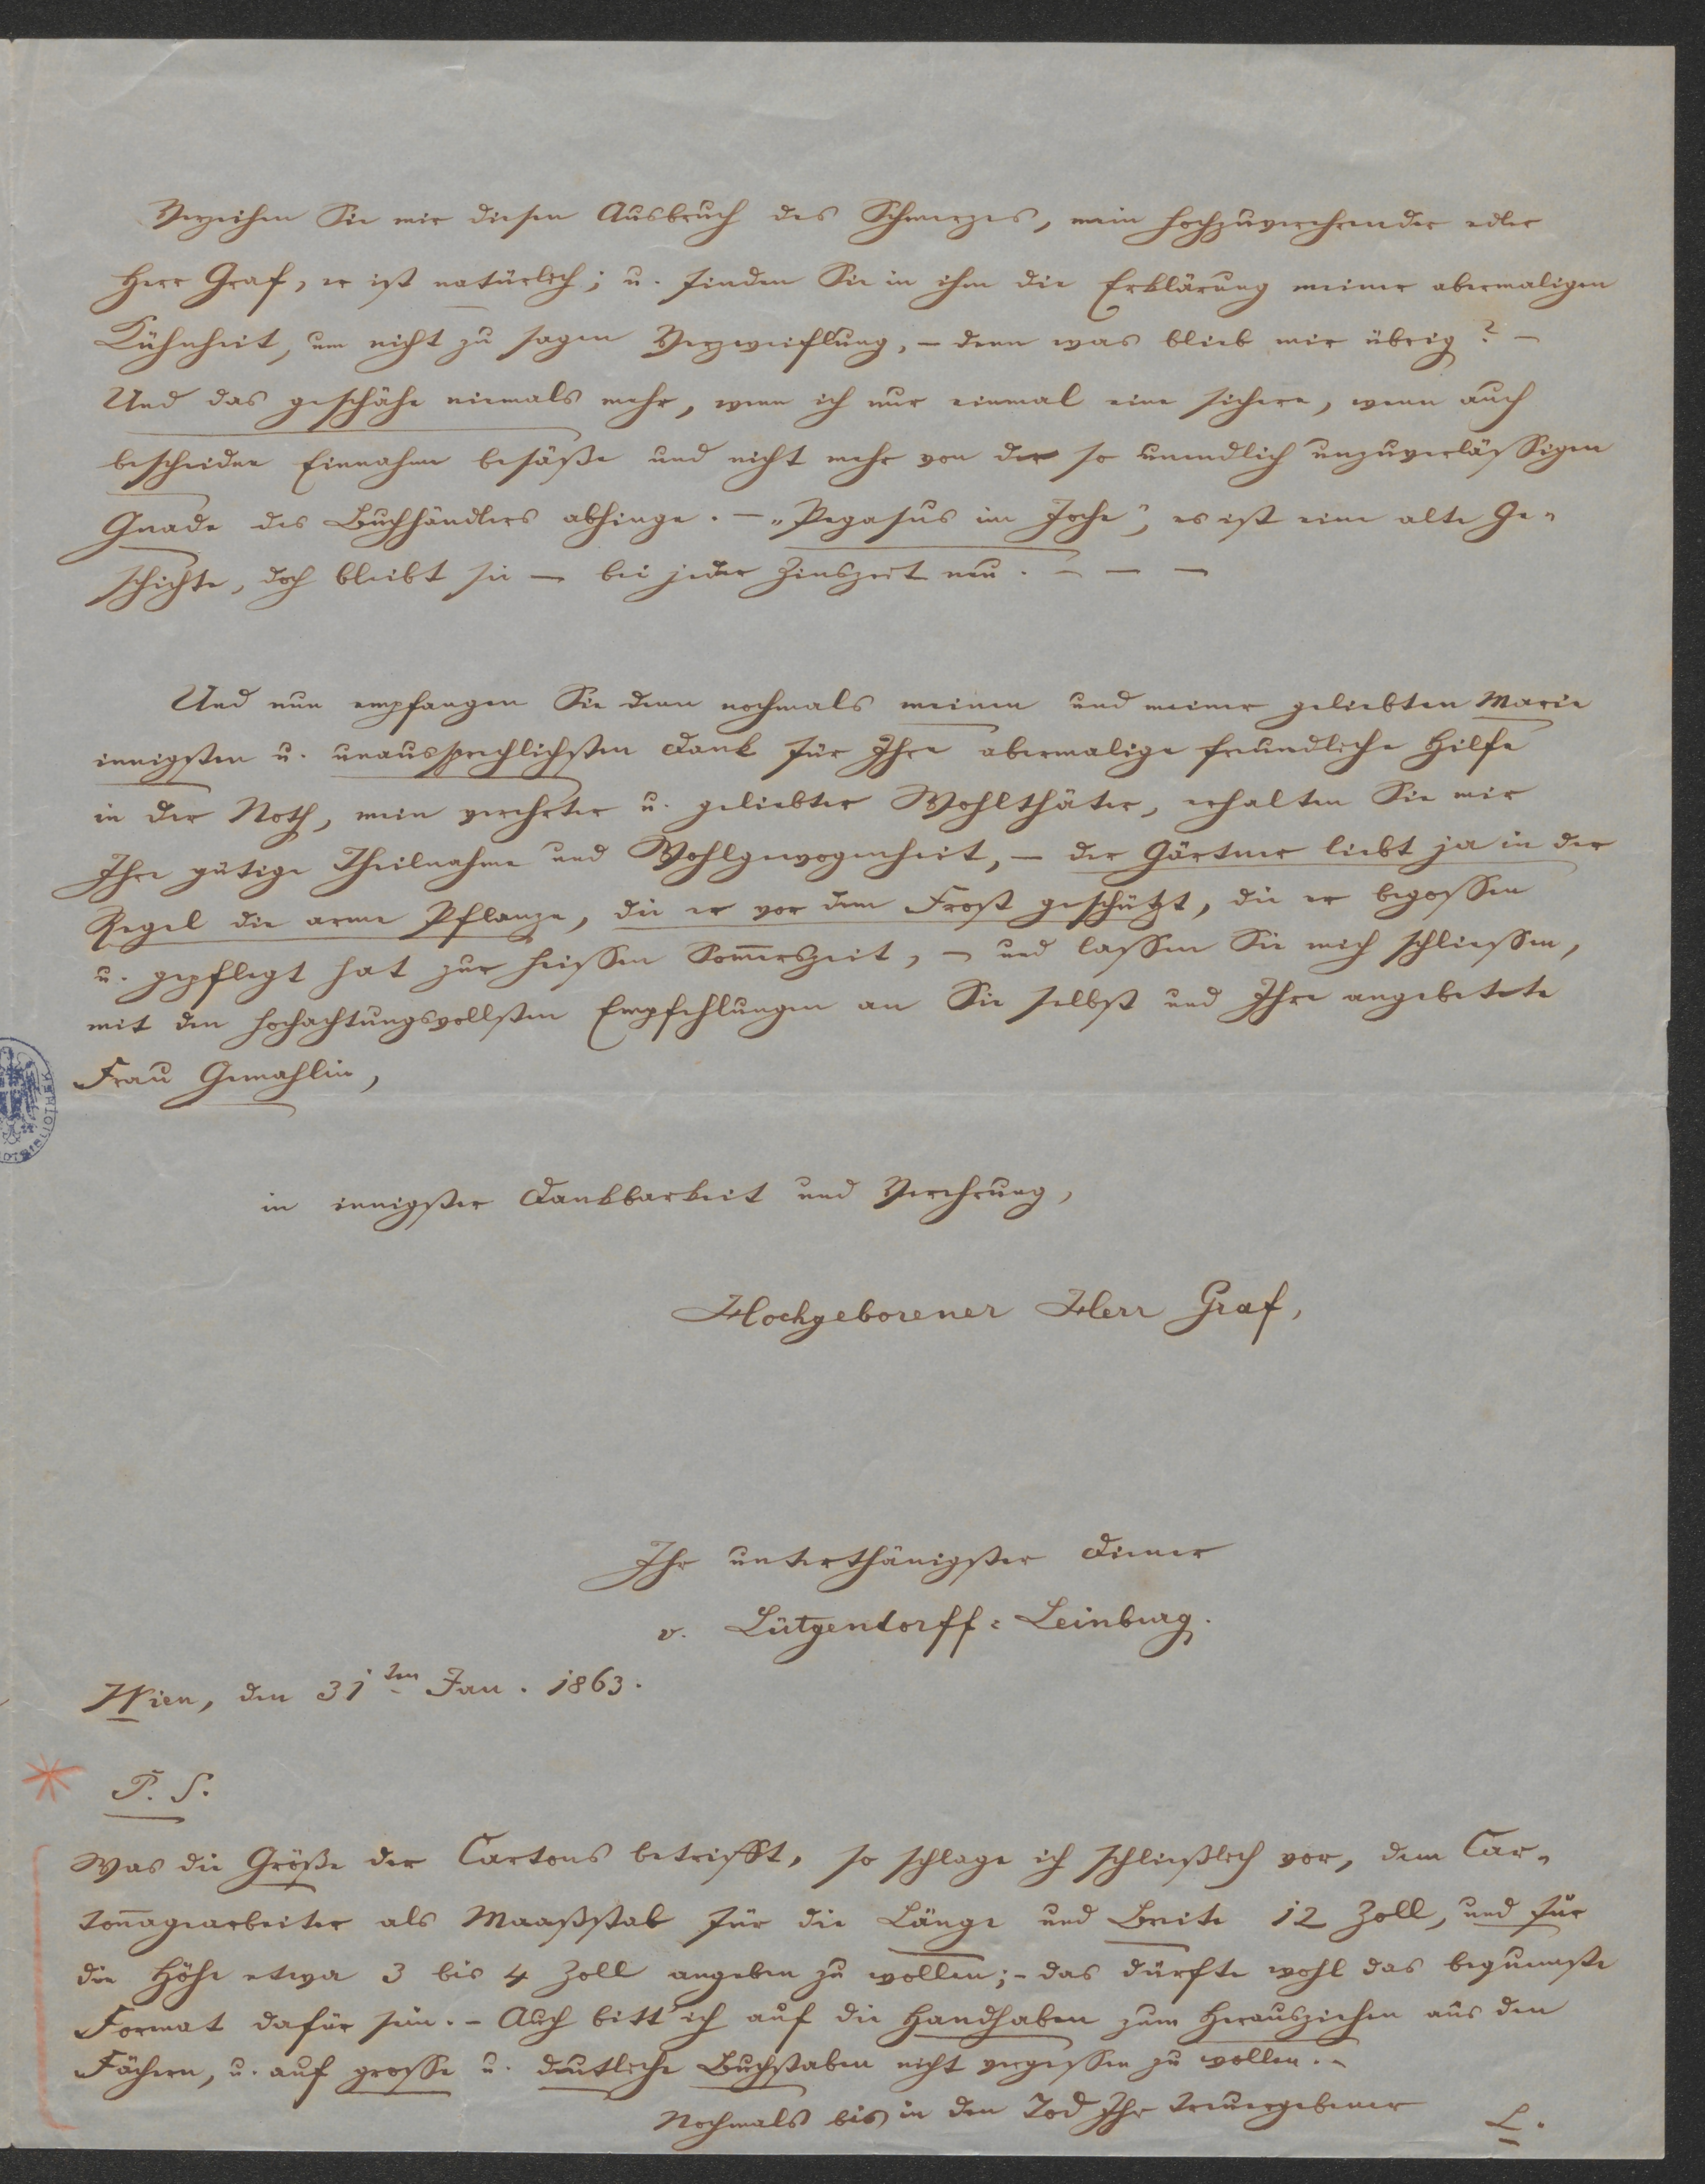 Verzeihen Sie mir diesen Ausbruch des Schmerzes, mein hochzuverehrender edler
Herr Graf, er ist natürlich; u. finden Sie in ihm die Erklärung meiner abermaligen
Kühnheit, um nicht zu sagen Verzweiflung, – denn was blieb mir übrig? –
Und das geschähe niemals mehr, wenn ich nur einmal eine sichere, wenn auch
bescheidne Einnahme besäße und nicht mehr von der so unendlich unzuverläßigen
Gnade des Buchhändlers abhinge. – „Pegasus im Joche", es ist eine alte Ge-
schichte, doch bleibt sie – bei jeder Zinszeit neu. – – –
Und nun empfangen Sie denn nochmals meinen und meiner geliebten Marie
innigsten u. unaussprechlichsten Dank für Ihre abermalige freundliche Hilfe
in der Noth, mein verehrter u. geliebter Wohlthäter, erhalten Sie mir
Ihre gütige Theilnahme und Wohlgewogenheit, – der Gärtner liebt ja in der
Regel die arme Pflanze, die er vor dem Frost geschützt, die er begossen
u. gepflegt hat zur heissen Som̅erszeit, – und lassen Sie mich schliessen,
mit den hochachtungsvollsten Empfehlungen an Sie selbst und Ihre angebetete
Frau Gemahlin,
in innigster Dankbarkeit und Verehrung,
Hochgeborener Herr Graf,
Ihr unterthänigster Diener
v. Lütgendorff-Leinburg.
Wien, den 31ten Jan. 1863.
P. S.
Was die Größe der Cartons betrifft, so schlage ich schließlich vor, dem Car-
ton̅agearbeiter als Maaßstab für die Länge und Breite 12 Zoll, und für
die Höhe etwa 3 bis 4 Zoll angeben zu wollen; – das dürfte wohl das bequemste
Format dafür sein. – Auch bitt' ich auf die Handhaben zum Herausziehen aus den
Fächern, u. auf grosse u. deutliche Buchstaben nicht vergessen zu wollen. –
Nochmals bis in den Tod Ihr treuergebener L.